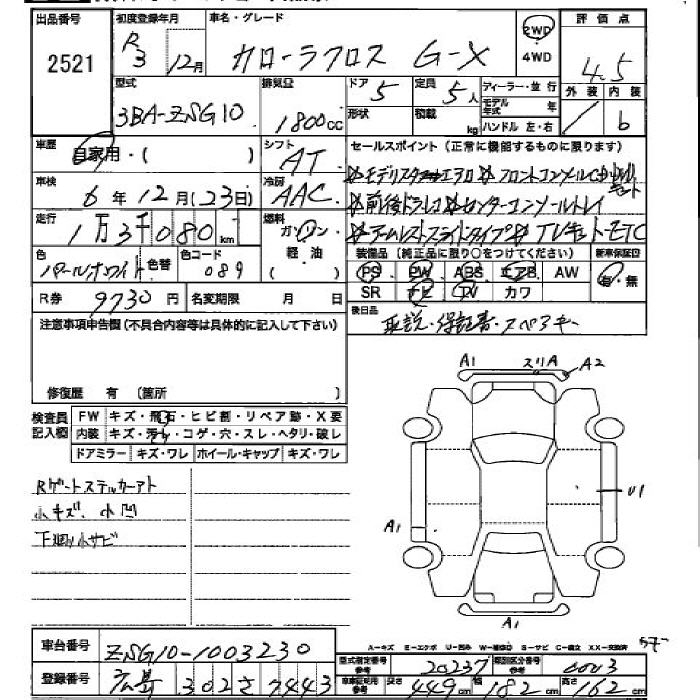 出品番号
2521
初度登録年月
R3 12月
車名・グレード
カローラクロス G-X
2WD
4WD
評価点
4.5
外装 内装
6
型式
3BA-ZSG10
排気量
1800cc
ドア
5
定員
5人
形状
積載 kg
ディーラー・並行
モデル年式 年
ハンドル 左・右
車歴
自家用・( )
シフト
AT
車検
6年12月(23日)
冷房
AAC
走行
1万3千080km
燃料
ガソリン
軽・油
色
パールホワイト
色替
色コード
089
R券
9730円
名変期限 月 日
セールスポイント(正常に機能するものに限ります)
☆モデリスタエアロ☆フロントコンソール
☆前後ドラレコ☆センターコンソールトレイ
☆アームレストスライドタイプ☆TVキット・ETC
装備品(純正品に限り○をつけてください)
新車保証書
PS PW ABS エアB AW
SR ナビ TV カワ
有・無
後日品
取説・保証書・スペアキー
注意事項申告欄(不具合内容等は具体的に記入して下さい)
修復歴 有 (箇所 )
検査員記入欄
FW キズ・飛石・ヒビ割・リペア跡・X要
内装 キズ・汚れ・コゲ・穴・スレ・ヘタリ・破レ
ドアミラー キズ・ワレ ホイール・キャップ キズ・ワレ
Rゲートステッカーアト
小キズ、小凹
下廻小サビ
A1 スリA A2
U1
A1
A1
A-キズ E-エクボ U-凹み W-補修跡 S-サビ C-腐立 XX-交換済
車台番号
ZSG10-1003230
登録番号
広島 302さ7443
型式指定番号 参考
20237
類別区分番号 参考
0003
車庫証明用 参考
長さ 449cm 幅 182cm 高さ 162cm